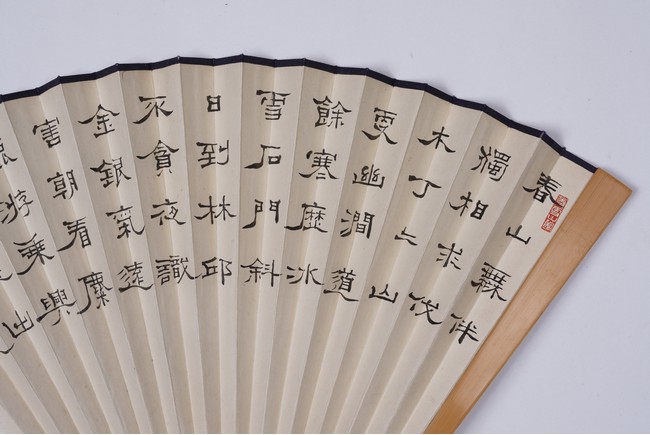 春山無伴
獨相求伐
木丁々山
更幽澗道
餘寒歷冰
雪石門斜
日到林邱
不貪夜識
金銀氣遠
害朝看麋
游乘興
出